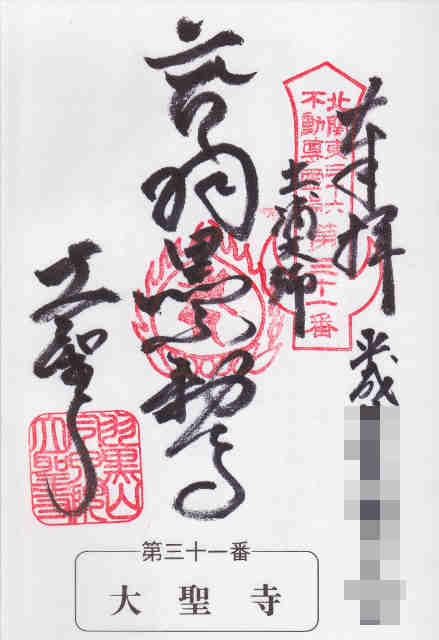 奉拝 平成
北関東三十六
不動尊霊場
第三十一番
土浦大師
羽黒不動尊
大聖寺
羽黒山
大聖寺
第三十一番
大聖寺